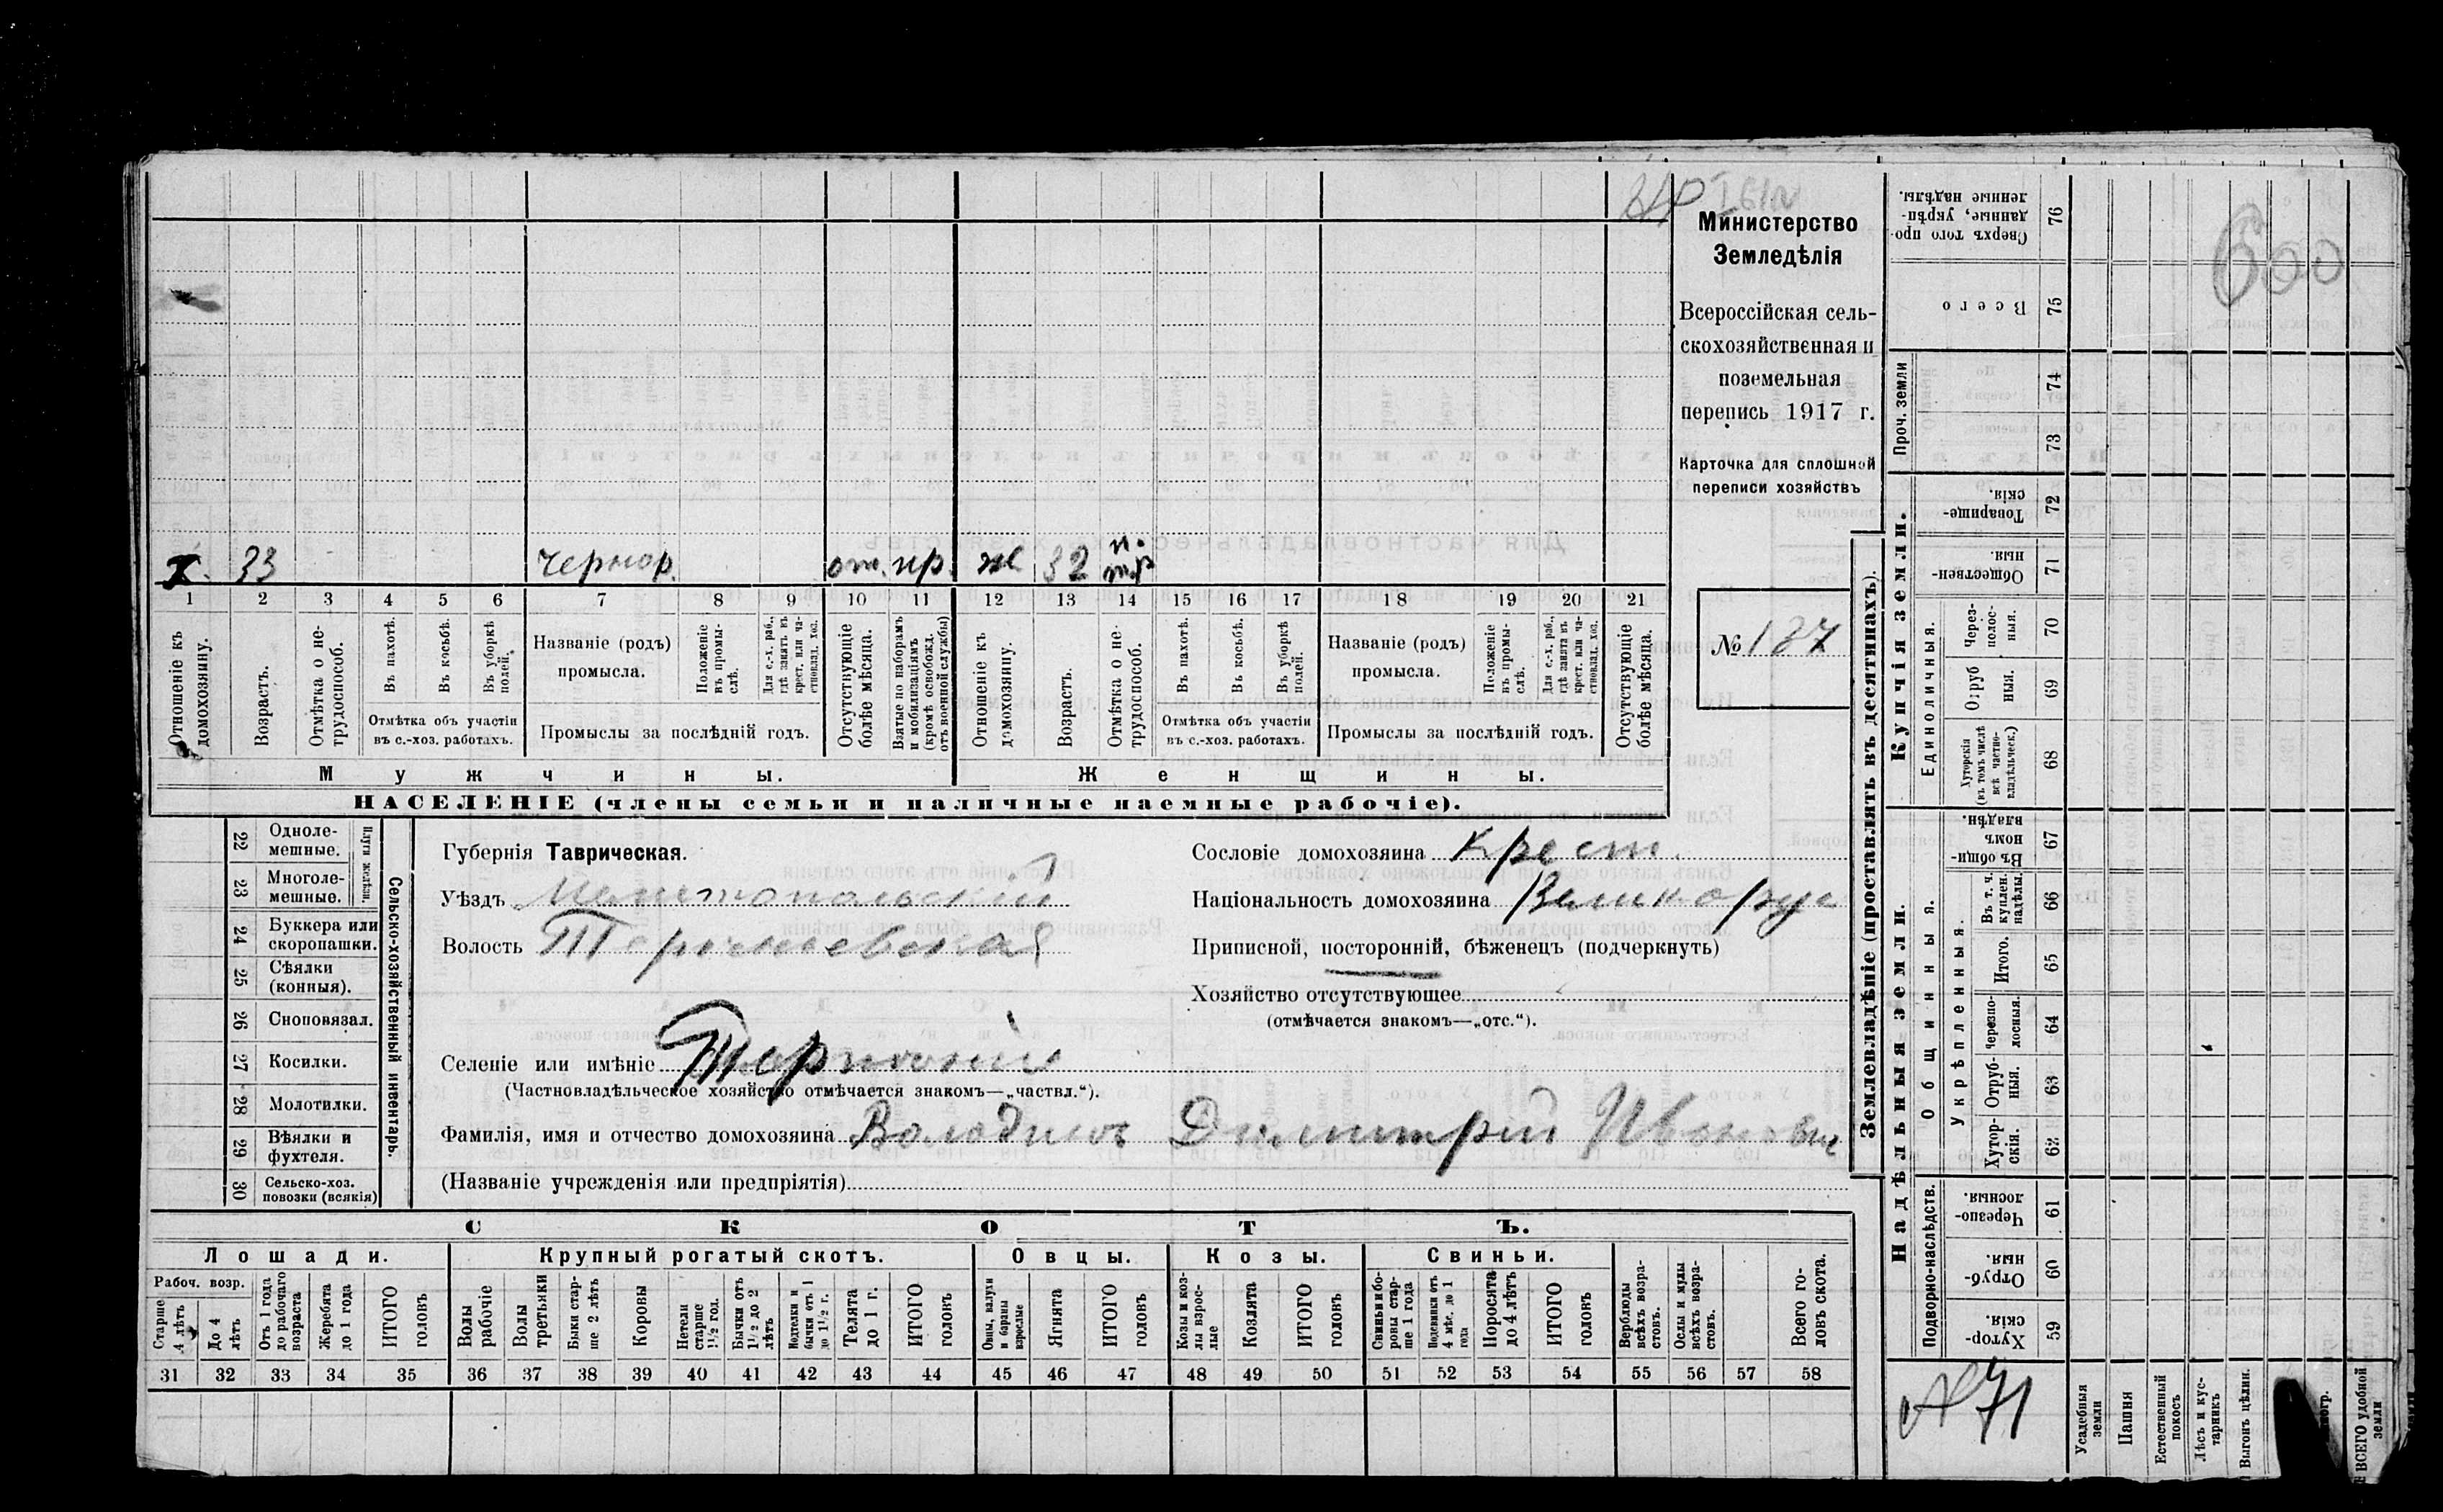 Министерство
Земледѣлія
Всероссійская сель-
скохозяйственная и
поземельная
перепись 1917 г.
Карточка для сплошной
переписи хозяйствъ
№ 187
х. 33 чернор. от. пр. ж 32 н. тр
1 2 3 4 5 6 7 8 9 10 11 12 13 14 15 16 17 18 19 20 21
Отношеніе къ домохозяину.
Возрастъ.
Отмѣтка о не-трудоспособ.
Въ пахотѣ.
Въ косьбѣ.
Въ уборкѣ полей.
Отмѣтка объ участіи
въ с.-хоз. работахъ.
Названіе (родъ)
промысла.
Положеніе въ промы-слѣ.
Для с.-х. раб., гдѣ занятъ въ крест. или ча-стновлад. хоз.
Промыслы за послѣдній годъ.
Отсутствующіе болѣе мѣсяца.
Взятые по наборамъ и мобилизаціямъ (кромѣ освобожд. отъ военной службы)
Отношеніе къ домохозяину.
Возрастъ.
Отмѣтка о не-трудоспособ.
Въ пахотѣ.
Въ косьбѣ.
Въ уборкѣ полей.
Отмѣтка объ участіи
въ с.-хоз. работахъ.
Названіе (родъ)
промысла.
Положеніе въ промы-слѣ.
Для с.-х. раб., гдѣ занята въ крест. или ча-стновлад. хоз.
Промыслы за послѣдній годъ.
Отсутствующіе болѣе мѣсяца.
Мужчины.
Женщины.
НАСЕЛЕНІЕ (члены семьи и наличные наемные рабочіе).
22 Одноле-мешные.
23 Многоле-мешные.
Плуги желѣзн.
24 Буккера или скоропашки.
25 Сѣялки (конныя).
26 Сноповязал.
27 Косилки.
28 Молотилки.
29 Вѣялки и фухтеля.
30 Сельско-хоз. повозки (всякія)
Сельско-хозяйственный инвентарь.
Губернія Таврическая.
Уѣздъ Мелитопольскій
Волость Терпеньевская
Селеніе или имѣніе Терпѣніе
(Частновладѣльческое хозяйство отмѣчается знакомъ—„частвл.“).
Фамилія, имя и отчество домохозяина Димитрій Ивонович
(Названіе учрежденія или предпріятія)
Сословіе домохозяина Крест.
Національность домохозяина Великорус
Приписной, посторонній, бѣженецъ (подчеркнуть)
Хозяйство отсутствующее
(отмѣчается знакомъ—„отс.“).
СКОТЪ.
Лошади.
Крупный рогатый скотъ.
Овцы.
Козы.
Свиньи.
Рабоч. возр.
Старше 4 лѣтъ
До 4 лѣтъ
Отъ 1 года до рабочаго возраста
Жеребята до 1 года
ИТОГО головъ
Волы рабочіе
Волы третьяки
Быки стар-ше 2 лѣтъ
Коровы
Нетели старше 1½ год.
Бычки отъ 1½ до 2 лѣтъ
Подтелки и бычки отъ 1 до 1½ г.
Телята до 1 г.
ИТОГО головъ
Овцы, валухи и бараны взрослые
Ягнята
ИТОГО головъ
Козы и коз-лы взрос-лые
Козлята
ИТОГО головъ
Свиньи и бо-ровы стар-ше 1 года
Подсвинки отъ 4 мѣс. до 1 года
Поросята до 4 лѣтъ
ИТОГО головъ
Верблюды всѣхъ возра-стовъ.
Ослы и мулы всѣхъ возра-стовъ.
Всего го-ловъ скота.
31 32 33 34 35 36 37 38 39 40 41 42 43 44 45 46 47 48 49 50 51 52 53 54 55 56 57 58
Землевладѣніе (проставлять въ десятинахъ).
Надѣльныя земли.
Купчія земли.
Проч. земли
Подворно-наслѣдств.
Общинныя.
Укрѣпленныя.
Единоличныя.
Сверхъ того про-данные, укрѣп-ленные надѣлы. 76
Всего 75
74
73
Товарище-скія. 72
Обществен-ныя. 71
Через-полос-ныя. 70
Отруб-ныя. 69
Хуторскія (въ томъ числѣ всѣ частно-владѣльческ.) 68
Въ общи-номъ владѣн. 67
Въ т. ч. куплен. надѣлы. 66
Итого. 65
Черезпо-лосныя. 64
Отруб-ныя. 63
Хутор-скія. 62
Черезпо-лосныя. 61
Отруб-ныя. 60
Хутор-скія. 59
600
71
Усадебныя земли
Пашня
Естественный покосъ
Лѣсъ и кус-тарникъ
Выгонъ цѣлин.
ВСЕГО удобной земли